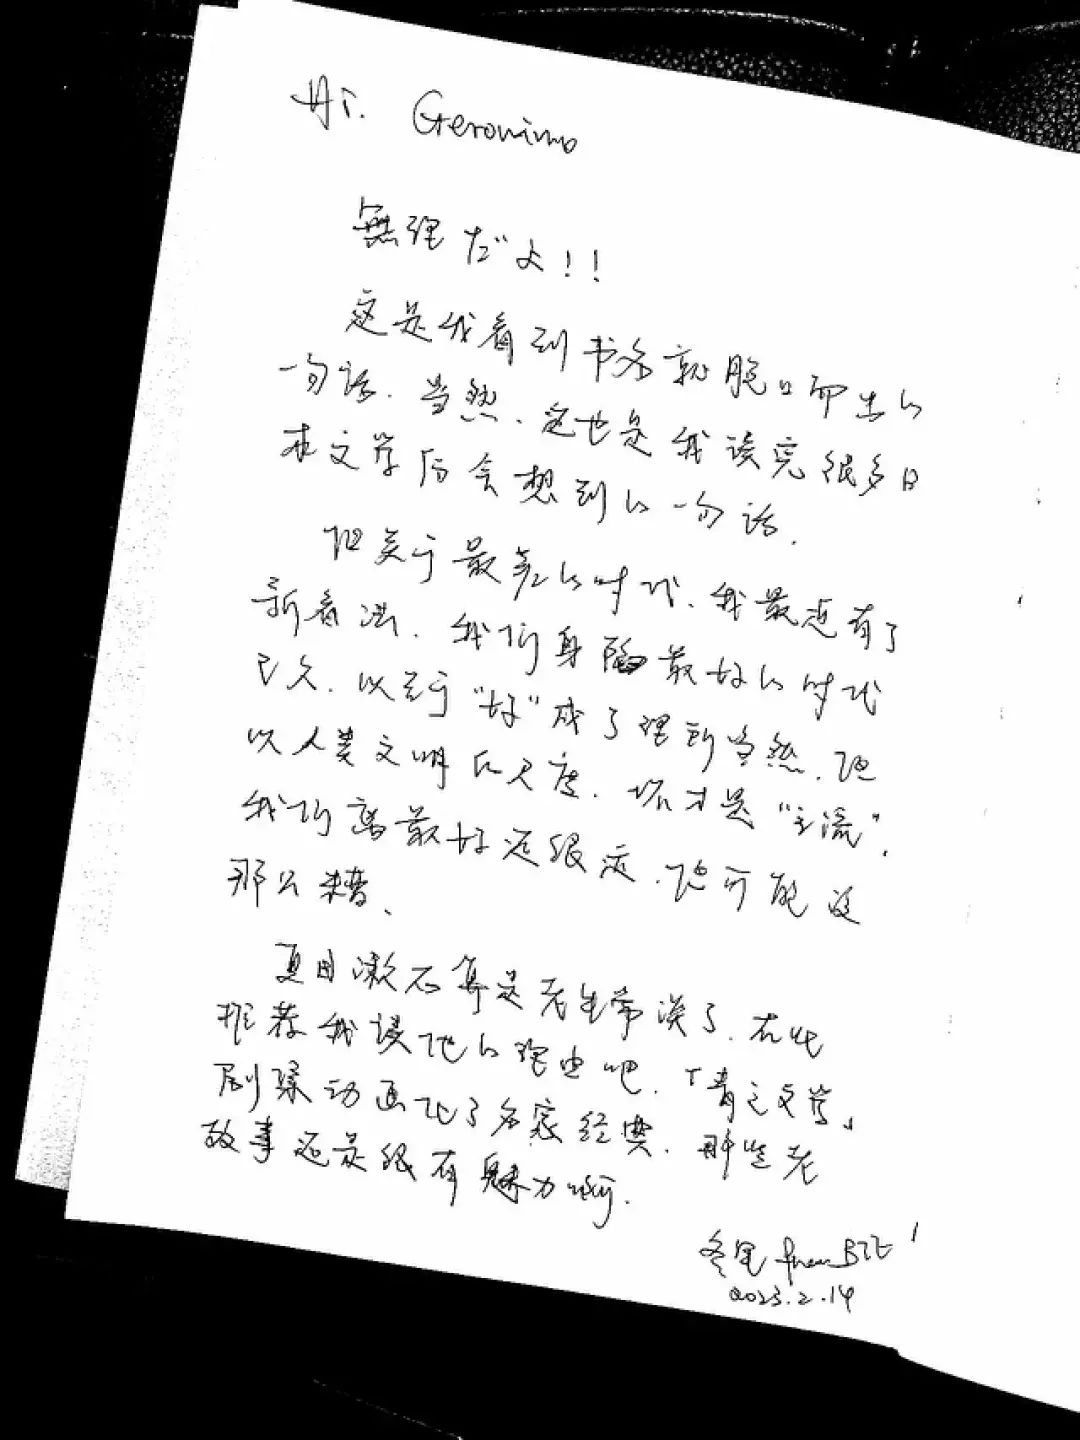 Hi. Geronimo
無理だよ!!
这是我看到书名就脱口而出的
一句话.当然.这也是我读完很多日
本文学后会想到的一句话.
但关于最美的时代.我最近有了
新看法.我们身陷最好的时代
已久.以至于"好"成了理所当然.但
以人类文明的尺度.坏才是"主流".
我们离最好还很远.也可能没
那么糟.
夏目漱石算是老生常谈了.在此
推荐我读他的理由吧.「青之文学」
剧集动画化了名家经典.那些老
故事还是很有魅力啊.
冬里 from BJ
2023.2.14